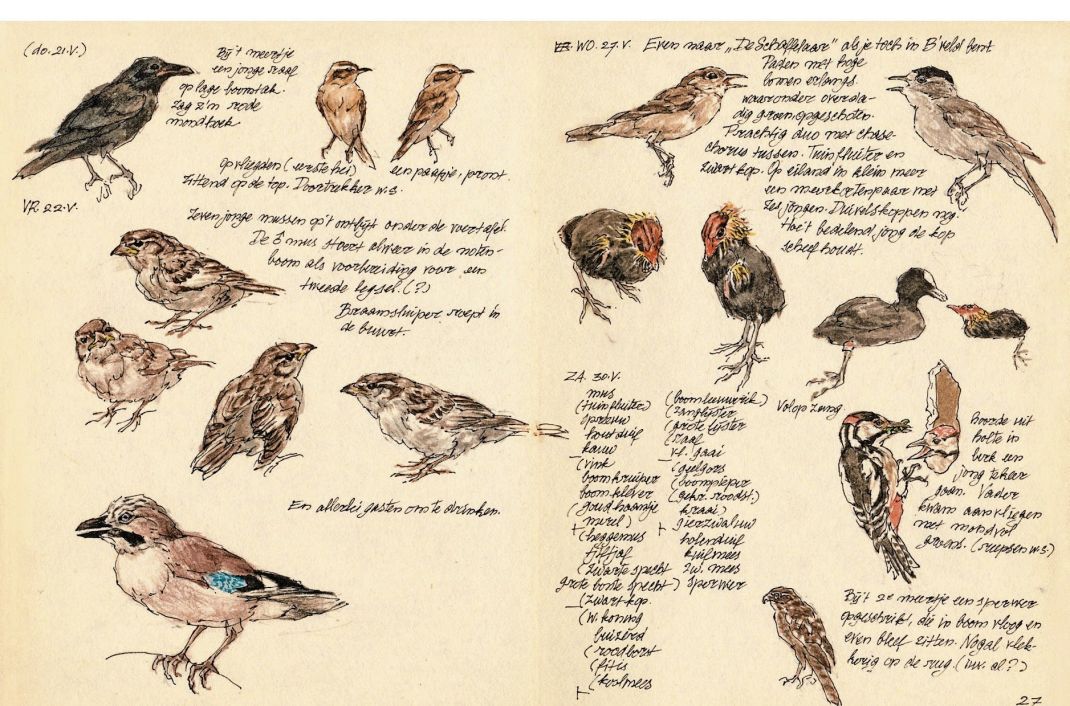 (do. 21.V.)
Bij 't meertje
een jonge raaf
op lage boomtak.
Zag z'n rode
mondhoek
Op vliegden (eerste hei)
zittend op de top. Doortrekker w.s.
een paapje. pront.
VR 22.V.
Zeven jonge mussen op 't ontbijt onder de voertafel.
De ♂ mus sleept alweer in de noten-
boom als voorbereiding voor een
tweede legsel. (?)
Braamsluiper roept in
de buurt.
En allerlei gasten om te drinken.
WO. 27.V. Even naar "De Schaffelaar" als je toch in B'veld bent
Paden met hoge
bomen erlangs
waaronder overda-
dig groen opgeschoten.
Prachtig duo met
chorus tussen. Tuinfluiter en
zwartkop. Op eiland in klein meer
een meerkoetenpaar met
zes jongen. Duivelskoppen nog!
Hoe 't bedelend jong de kop
scheef houdt.
ZA. 30.V.
mus
(tuinfluiter)
spreeuw
houtduif
kauw
(vink
boomkruiper
boomklever
(goudhaantje
merel)
(heggemus
tjiftjaf
(zwarte specht
grote bonte specht)
(zwartkop.
(w.koning
buizerd
(roodborst
(fitis
(koolmees
(boomleeuwerik)
(zanglijster
(grote lijster
(raaf
vl. gaai
(geelgors
(boompieper
(gekr. roodst.)
kraai)
gierzwaluw
holenduif
kuifmees
zw. mees
sperwer
Volop zang
Hoorde uit
holte in
berk een
jong tekeer
gaan. Vader
kwam aanvliegen
met mondvol
groens. (rupsen w.s.)
Bij 't 2e meertje een sperwer
opgeschrikt, die in boom vloog en
even bleef zitten. Nogal vlek-
kerig op de rug. (juv. al?)
27